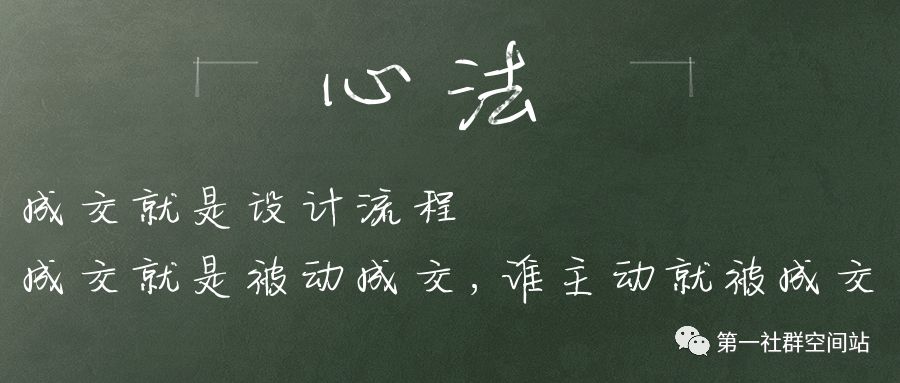 心法
成交就是设计流程
成交就是被动成交,谁主动就被成交
第一社群空间站